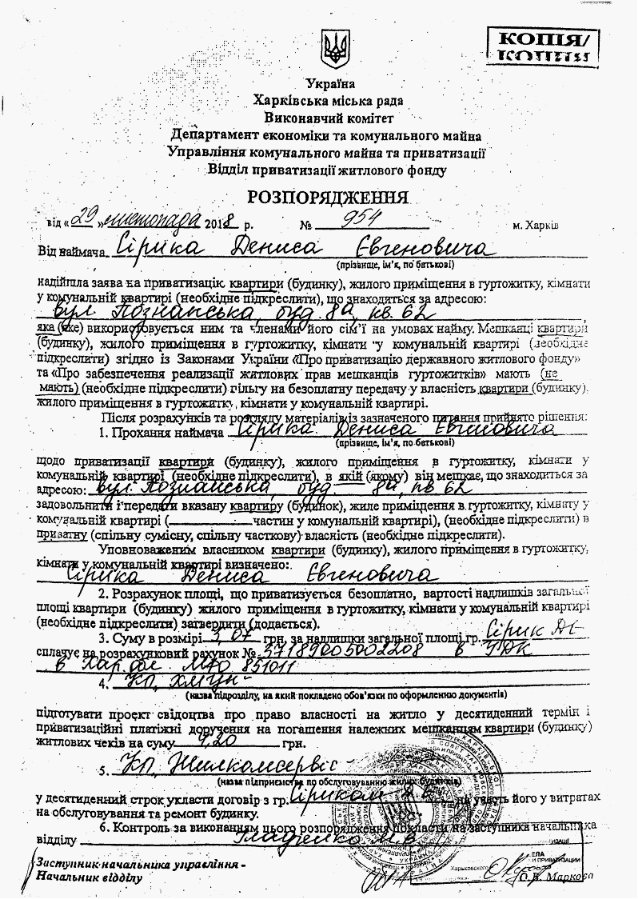 КОПІЯ/
КОПИЯ
Україна
Харківська міська рада
Виконавчий комітет
Департамент економіки та комунального майна
Управління комунального майна та приватизації
Відділ приватизації житлового фонду
РОЗПОРЯДЖЕННЯ
від « 29 » листопада 2018 р. № 954 м. Харків
Від наймача Сіріка Дениса Євгеновича
(прізвище, ім’я, по батькові)
надійшла заява на приватизацію квартири (будинку), жилого приміщення в гуртожитку, кімнати
у комунальній квартирі (необхідне підкреслити), що знаходиться за адресою:
вул. Познанська, буд. 8а, кв. 62
яка (яке) використовується ним та членами його сім’ї на умовах найму. Мешканці квартири
(будинку), жилого приміщення в гуртожитку, кімнати у комунальній квартирі (необхідне
підкреслити) згідно із Законами України «Про приватизацію державного житлового фонду»
та «Про забезпечення реалізації житлових прав мешканців гуртожитків» мають (не
мають) (необхідне підкреслити) пільгу на безоплатну передачу у власність квартири (будинку),
жилого приміщення в гуртожитку, кімнати у комунальній квартирі.
Після розрахунків та розгляду матеріалів із зазначеного питання прийнято рішення:
1. Прохання наймача Сіріка Дениса Євгеновича
(прізвище, ім’я, по батькові)
щодо приватизації квартири (будинку), жилого приміщення в гуртожитку, кімнати у
комунальній квартирі (необхідне підкреслити), в якій (якому) він мешкає, що знаходиться за
адресою: вул. Познанська, буд. 8а, кв. 62
задовольнити і передати вказану квартиру (будинок), жиле приміщення в гуртожитку, кімнату у
комунальній квартирі (____________ частин у комунальній квартирі), (необхідне підкреслити) в
приватну (спільну сумісну, спільну часткову) власність (необхідне підкреслити).
Уповноваженим власником квартири (будинку), жилого приміщення в гуртожитку,
кімнати у комунальній квартирі визначено:
Сіріка Дениса Євгеновича
2. Розрахунок площі, що приватизується безоплатно, вартості надлишків загальної
площі квартири (будинку) жилого приміщення в гуртожитку, кімнати у комунальній квартирі
(необхідне підкреслити) затвердити (додається).
3. Суму в розмірі 3,07 грн. за надлишки загальної площі гр. Сірик
сплачує на розрахунковий рахунок № 37189005002208 в УДК
в Хар. МФО 851011
4. КП
(назва підрозділу, на який покладено обов’язки по оформленню документів)
підготувати проект свідоцтва про право власності на житло у десятиденний термін і
приватизаційні платіжні доручення на погашення належних мешканцям квартири (будинку)
житлових чеків на суму 9,20 грн.
5. КП Жилкомсервіс
(назва підприємства по обслуговуванню жилих будинків)
у десятиденний строк укласти договір з гр. Сіриком на участь його у витратах
на обслуговування та ремонт будинку.
6. Контроль за виконанням цього розпорядження покласти на заступника начальника
відділу
Заступник начальника управління -
Начальник відділу О.В. Маркова